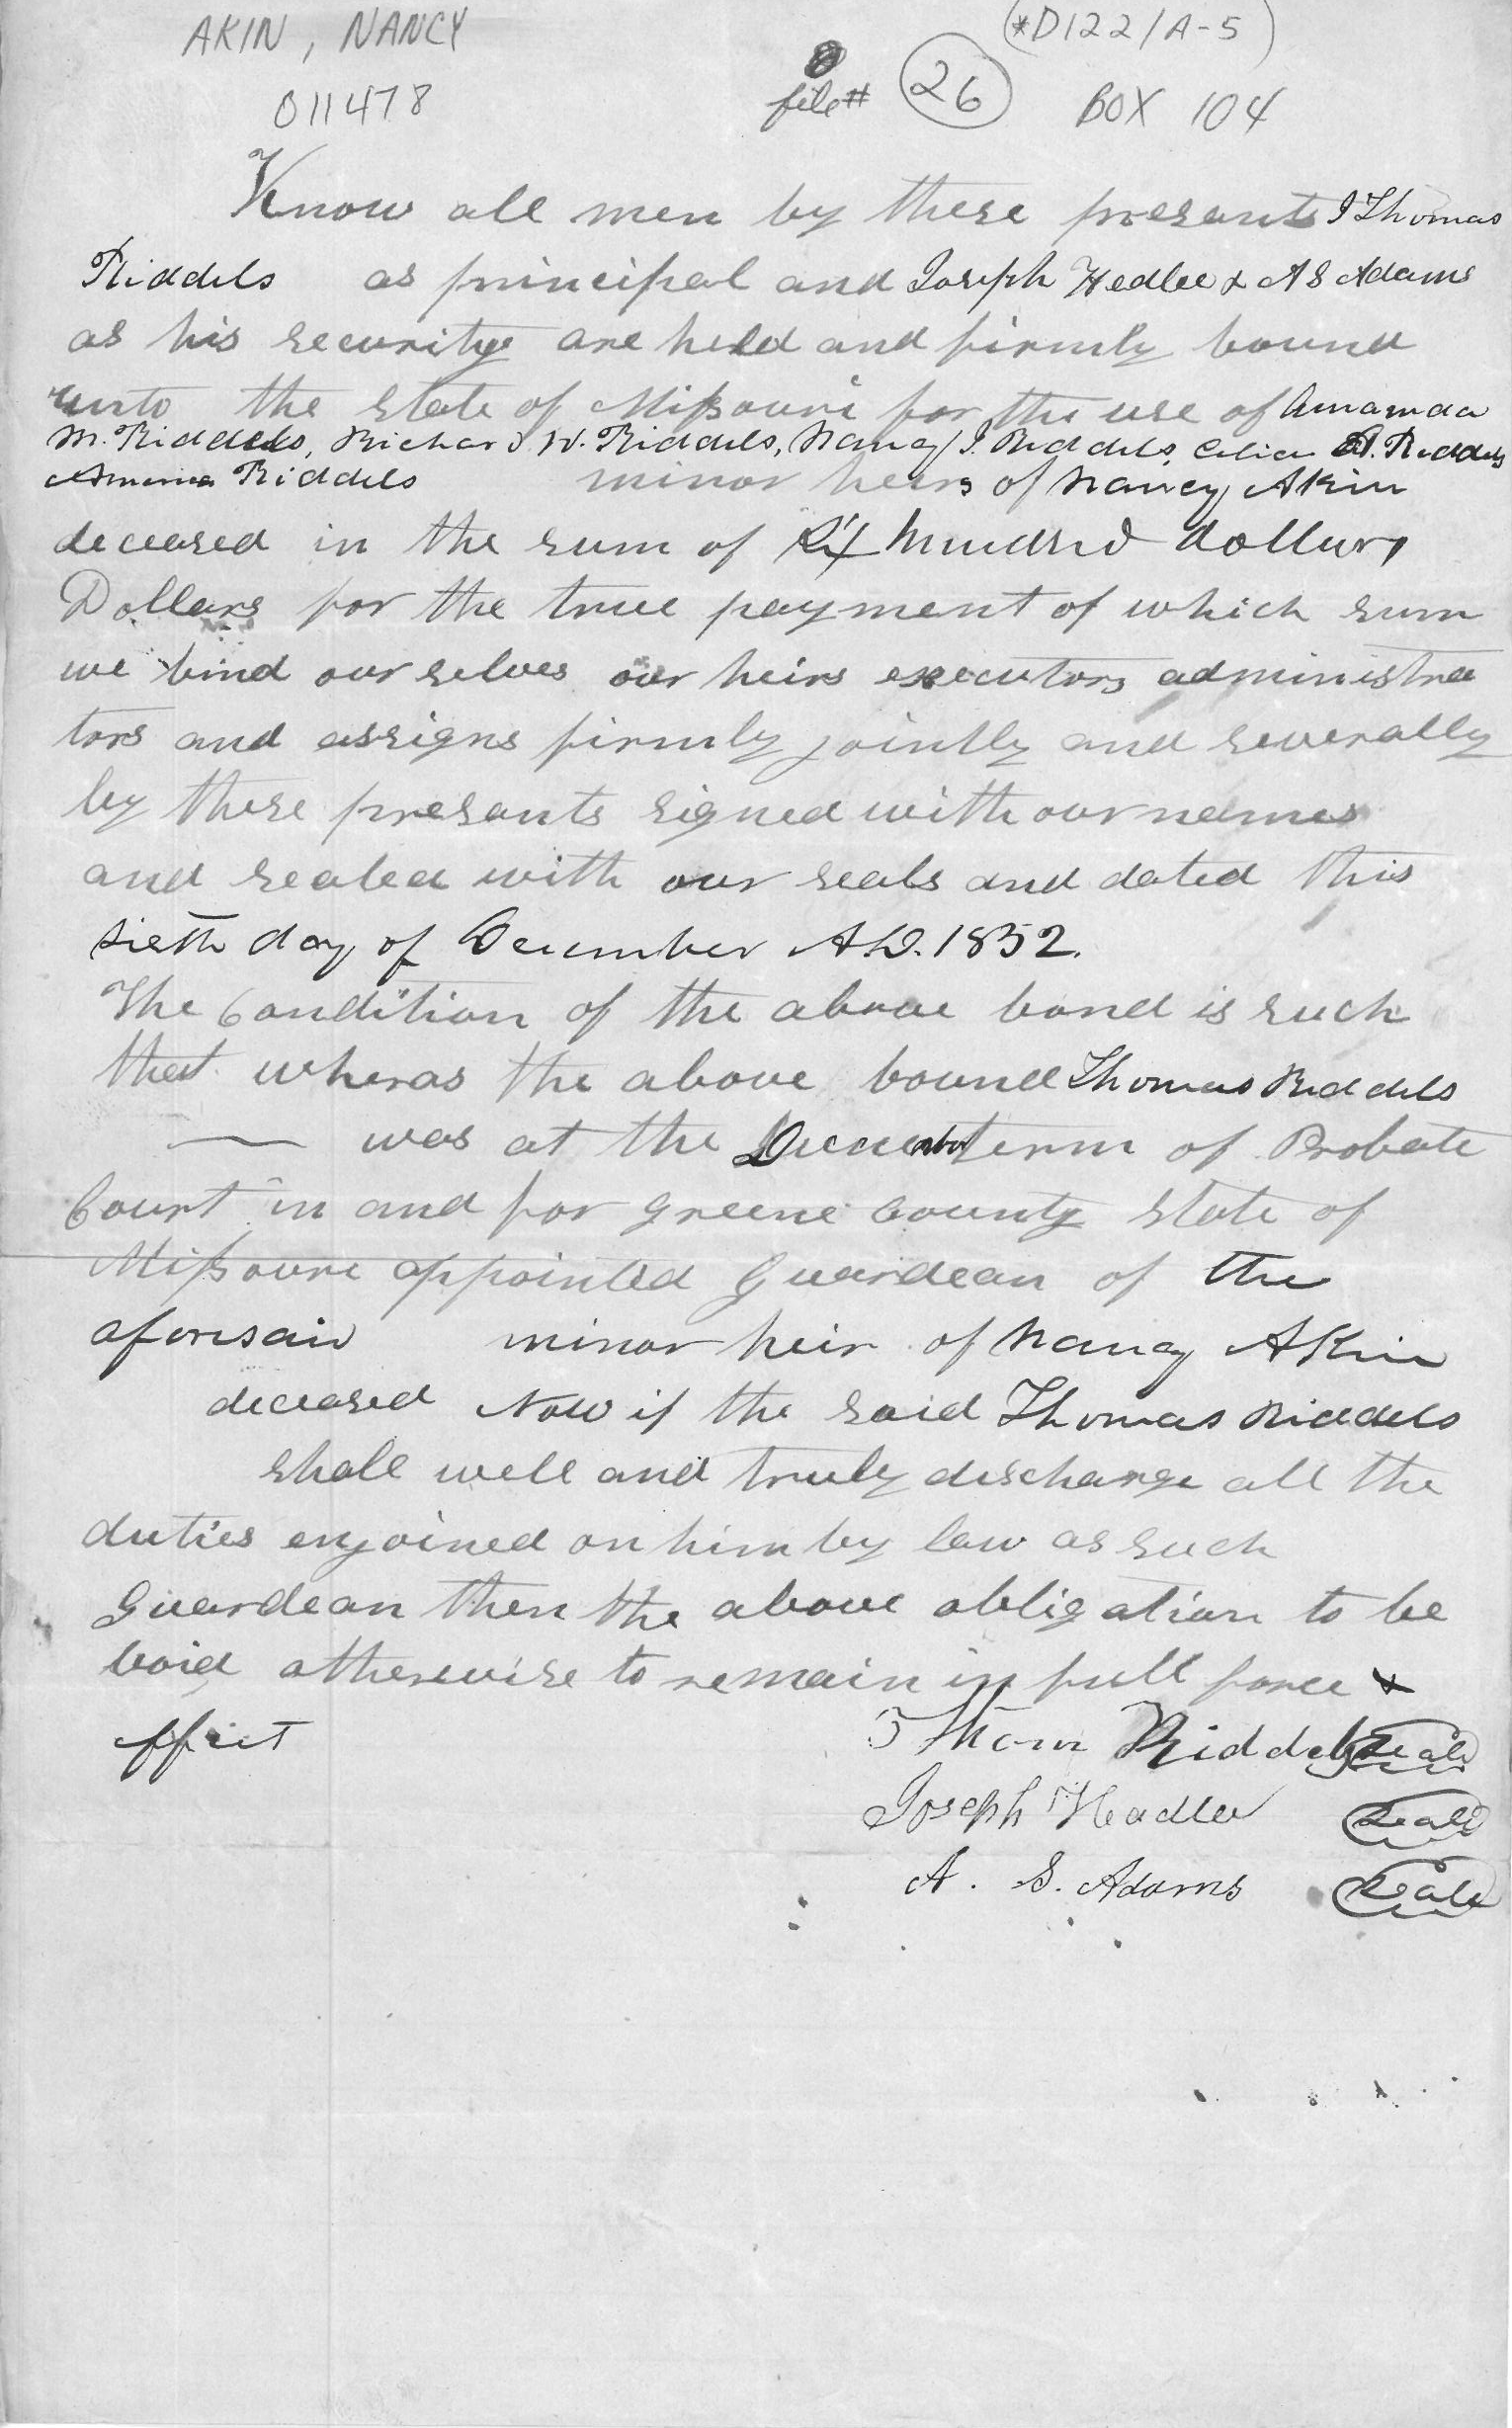 AKIN, NANCY
011478
file# 26
(*D122/A-5)
BOX 104
Know all men by these presants I Thomas
Riddels as principal and Joseph Hedlee & A S Adams
as his security are held and firmly bound
unto the state of Missouri for the use of Amamda
M. Riddels, Richard W. Riddels, Nancy J. Riddels, Celia A. Riddels
Armina Riddels minor heirs of Nancy Akin
deceased in the sum of Six hundred dollars
Dollars for the true payment of which sum
we bind our selves our heirs executors administra
tors and assigns firmly jointly and severally
by these presants signed with our names
and sealed with our seals and dated this
sixth day of December A.D. 1852.
The Condition of the above bond is such
that wheras the above bound Thomas Riddels
— was at the December term of Probate
Court in and for Greene County State of
Missouri appointed Guardean of the
aforesaid minor heir of Nancy Akin
deceased Now if the said Thomas Riddels
shall well and truly discharge all the
duties enjoined on him by law as such
Guardean then the above obligation to be
void otherewise to remain in full force &
effect Thom Riddels Seal
Joseph Headlee Seal
A. S. Adams Seal